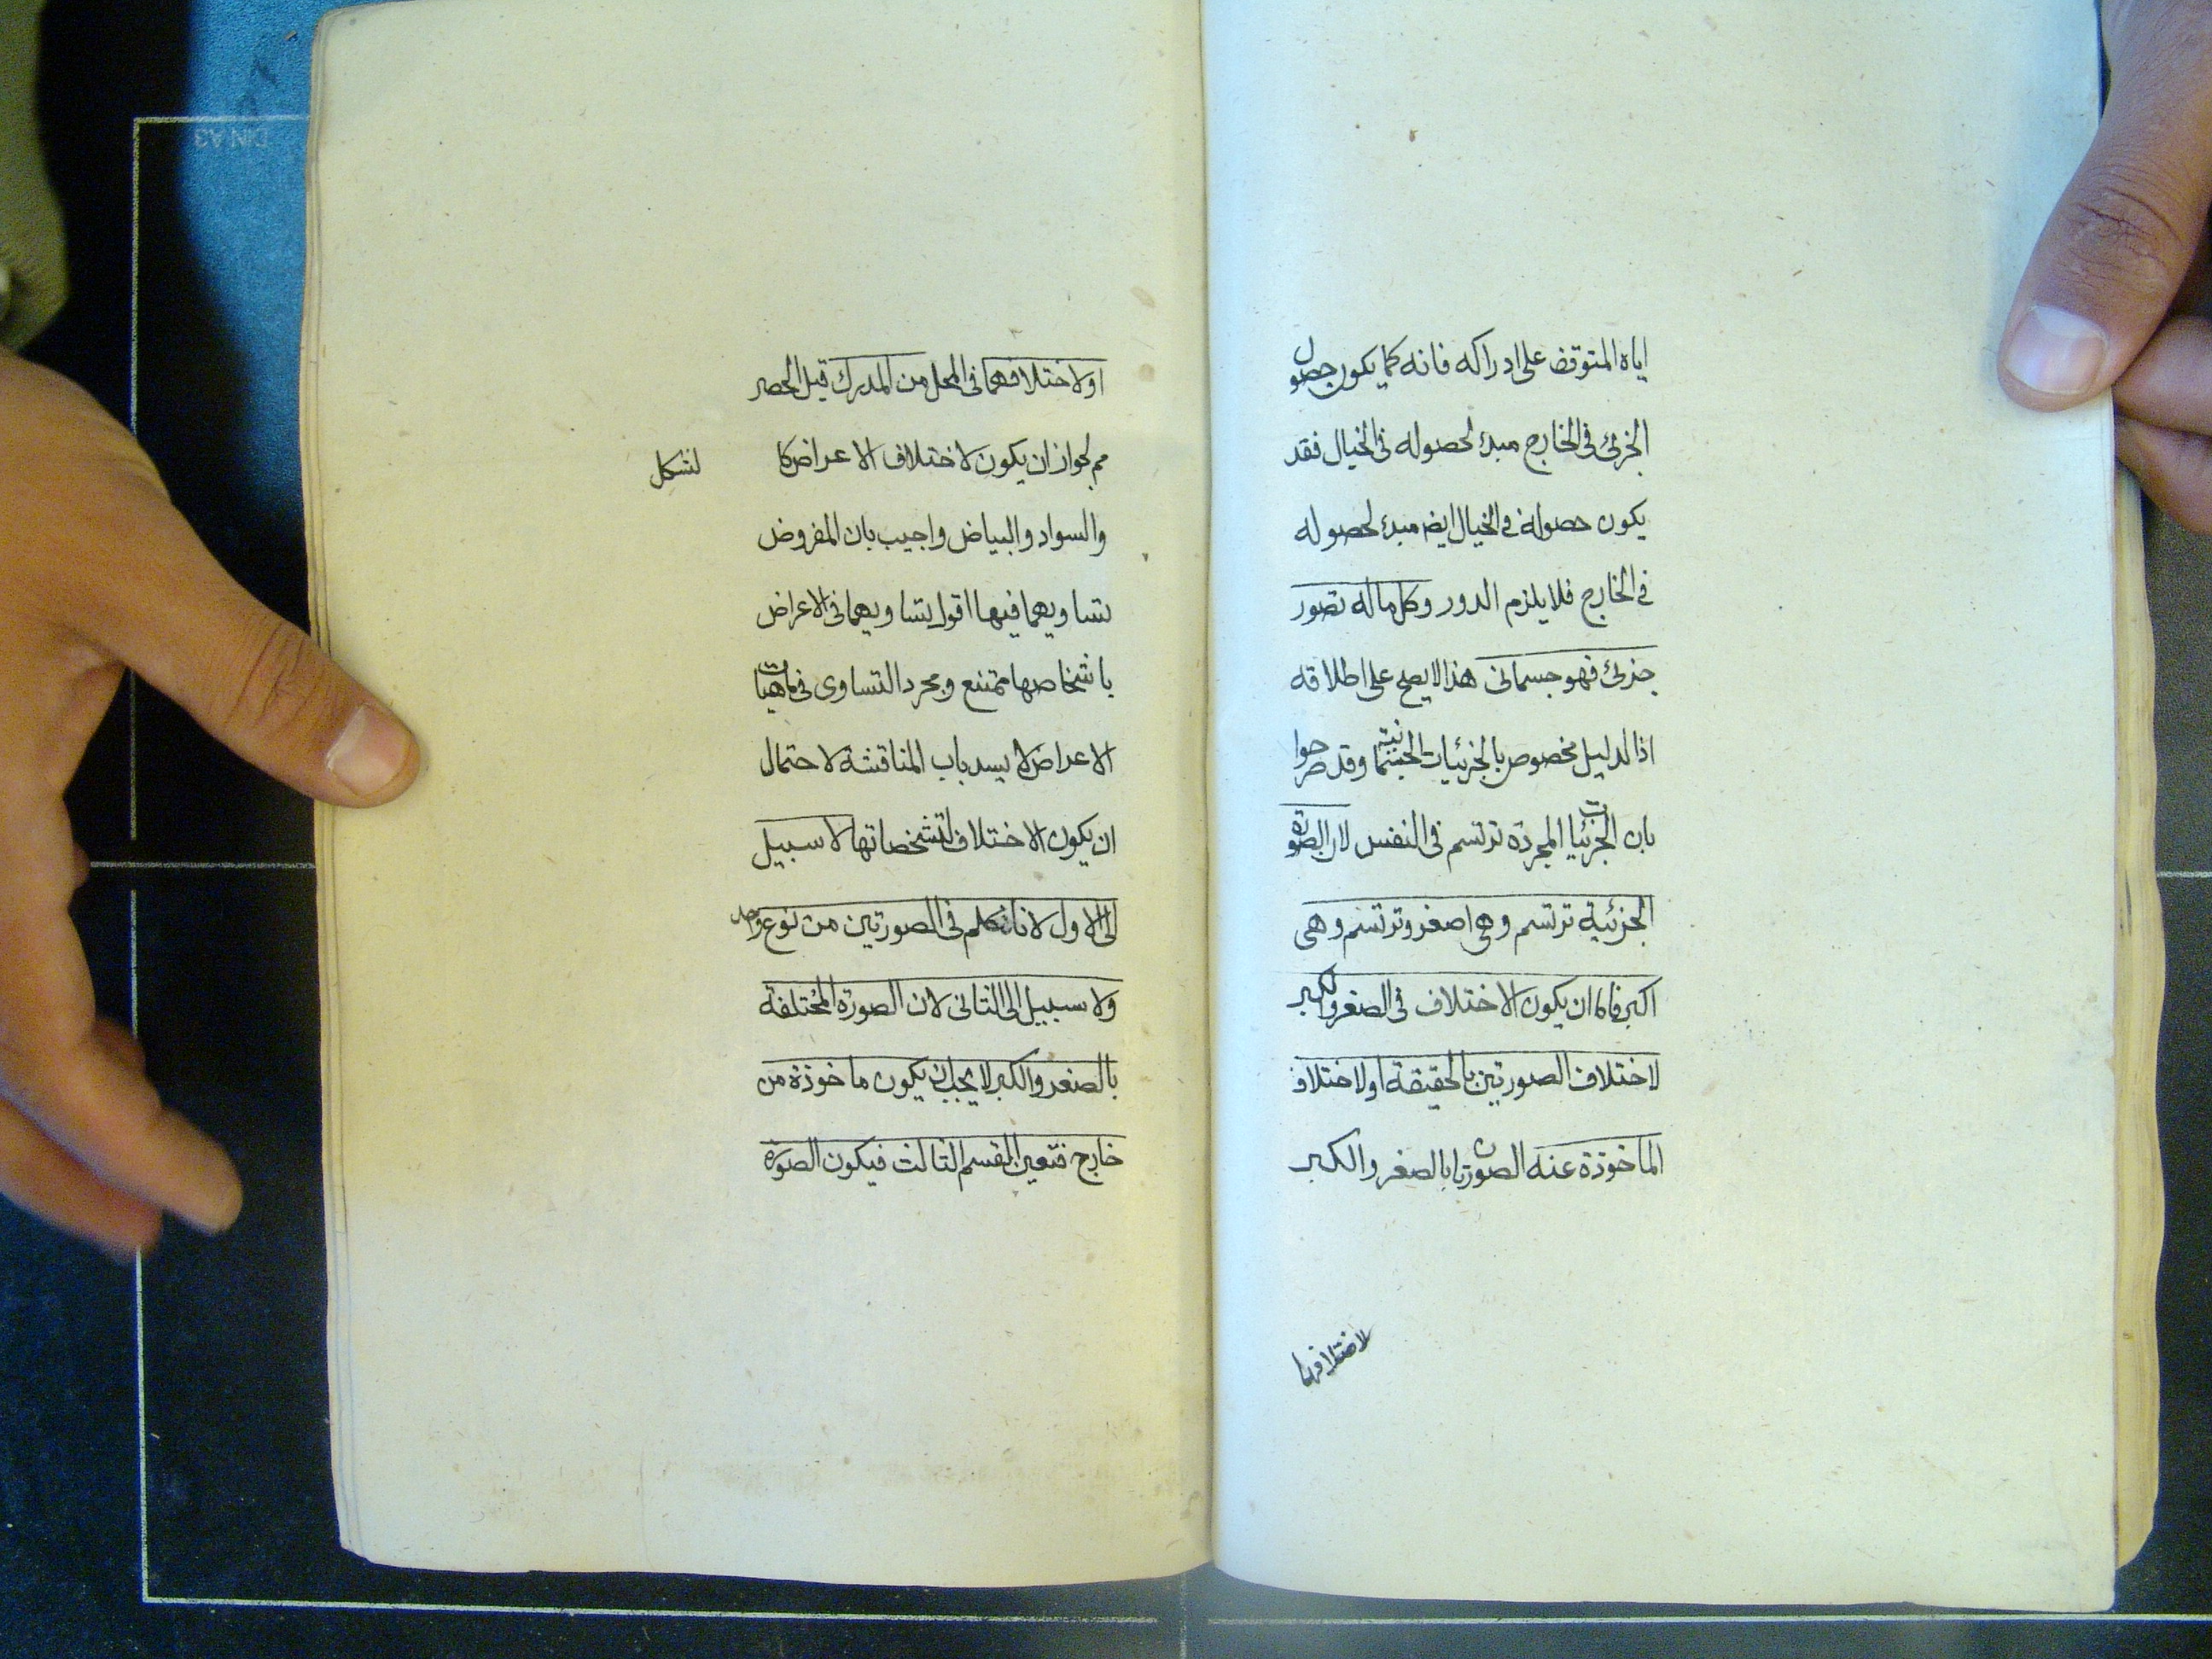 اياه المتوقف على ادراكه فانه كما يكون حصول
الجزئى فى الخارج مبدء لحصوله فى الخيال فقد
يكون حصوله فى الخيال ايضا مبدء لحصوله
فى الخارج فلا يلزم الدور وكل ما له تصور
جزئى فهو جسمانى هذا لا يصح على اطلاقه
اذ الدليل مخصوص بالجزئيات الجسمانية وقد صرحوا
بان الجزئيات المجردة ترتسم فى النفس لان الصورة
الجزئية ترتسم وهى اصغر وترتسم وهى
اكبر فاما ان يكون الاختلاف فى الصغر والكبر
لاختلاف الصورتين بالحقيقة او لاختلاف
الماخوذة عنه الصورتان بالصغر والكبر
لاختلافهما
او لاختلافهما فى المحل من المدرك قيل الحصر
مم لجواز ان يكون لاختلاف الاعراض كا لشكل
والسواد والبياض واجيب بان المفروض
تساويهما فيها اقول تساويهما فى الاعراض
باشخاصها ممتنع ومجرد التساوى فى ماهيات
الاعراض لا يسد باب المناقشة لاحتمال
ان يكون الاختلاف لتشخصاتها لا سبيل
الى الاول لانا نتكلم فى الصورتين من نوع واحد
ولا سبيل الى الثانى لان الصورة المختلفة
بالصغر والكبر لا يجب ان يكون ماخوذة من
خارج فتعين القسم الثالث فيكون الصورة